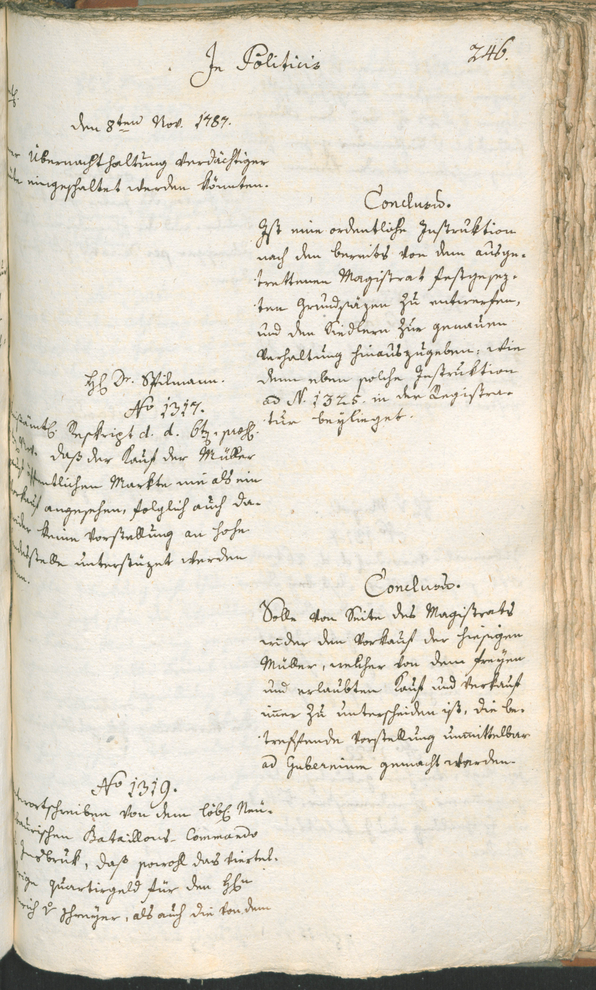 In Politicis
246.
den 8ten Nov. 1787.
Übernachthaltung verdächtiger
eingeschaltet werden könnten.
Conclusũ.
Ist eine ordentliche Instruktion
nach den bereits von dem ausge-
trettenen Magistrat festgesez-
ten Grundsäzen zu entwerfen,
und den Siedlern zur genauen
Verhaltung hinauszugeben; wie
denn eben solche Instruktion
ad N. 1325. in der Registra-
tur beylieget.
H. Dr. Stilmann.
No 1317.
Reskript d. d. 6t. pass.
Nov. daß der Kauf der Müller
öffentlichen Markte nie als ein
Vorkauf angesehen, folglich auch da-
wider keine Vorstellung an hohe
unterstüzet werden
Conclusũ.
Solle von Seite des Magistrats
wider den Vorkauf der hiesigen
Müller, welcher von dem freyen
und erlaubten Kauf und Verkauf
im̃er zu unterscheiden ist, die be-
treffende Vorstellung unmittelbar
ad Gubernium gemacht werden.
No 1319.
Antwortschreiben von dem löbl. Neu-
Bataillons-Commando
Innsbruk, daß sowohl das viertel-
Quartirgeld für den H.
als auch die von dem